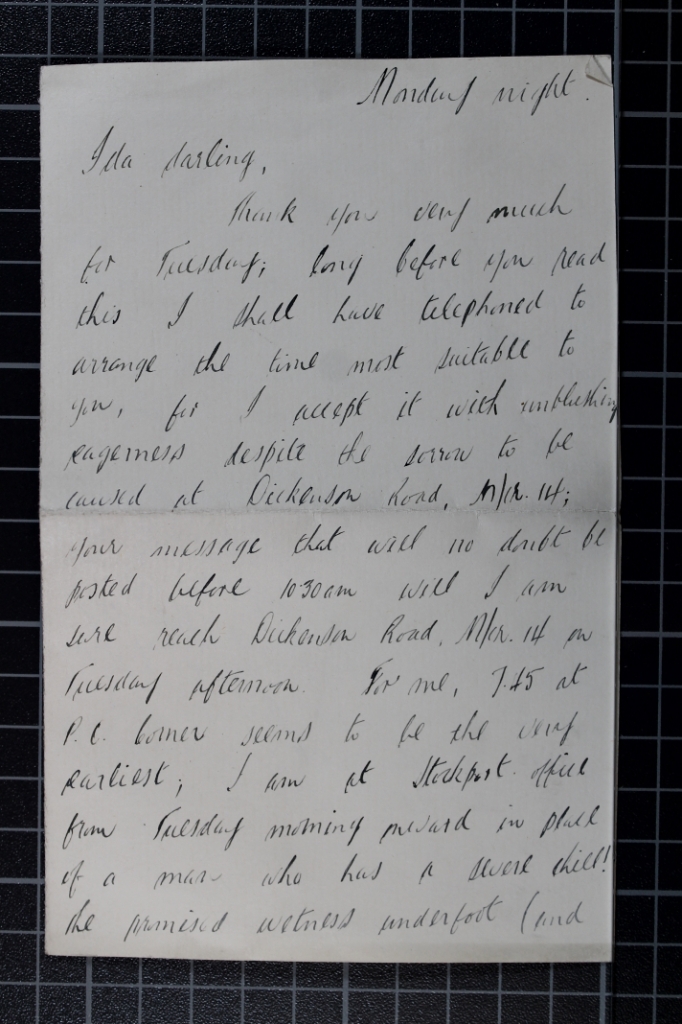 Monday night.
Ida darling,
Thank you very much
for Tuesday; long before you read
this I shall have telephoned to
arrange the time most suitable to
you, for I accept it with unblushing
eagerness despite the sorrow to be
caused at Dickenson Road, M/cr. 14;
your message that will no doubt be
posted before 10.30am will I am
sure reach Dickenson Road, M/cr. 14 on
Tuesday afternoon. For me, 7.45 at
P.C. Corner seems to be the very
earliest; I am at Stockport office
from Tuesday morning onward in place
of a man who has a severe chill!
The promised wetness underfoot (and